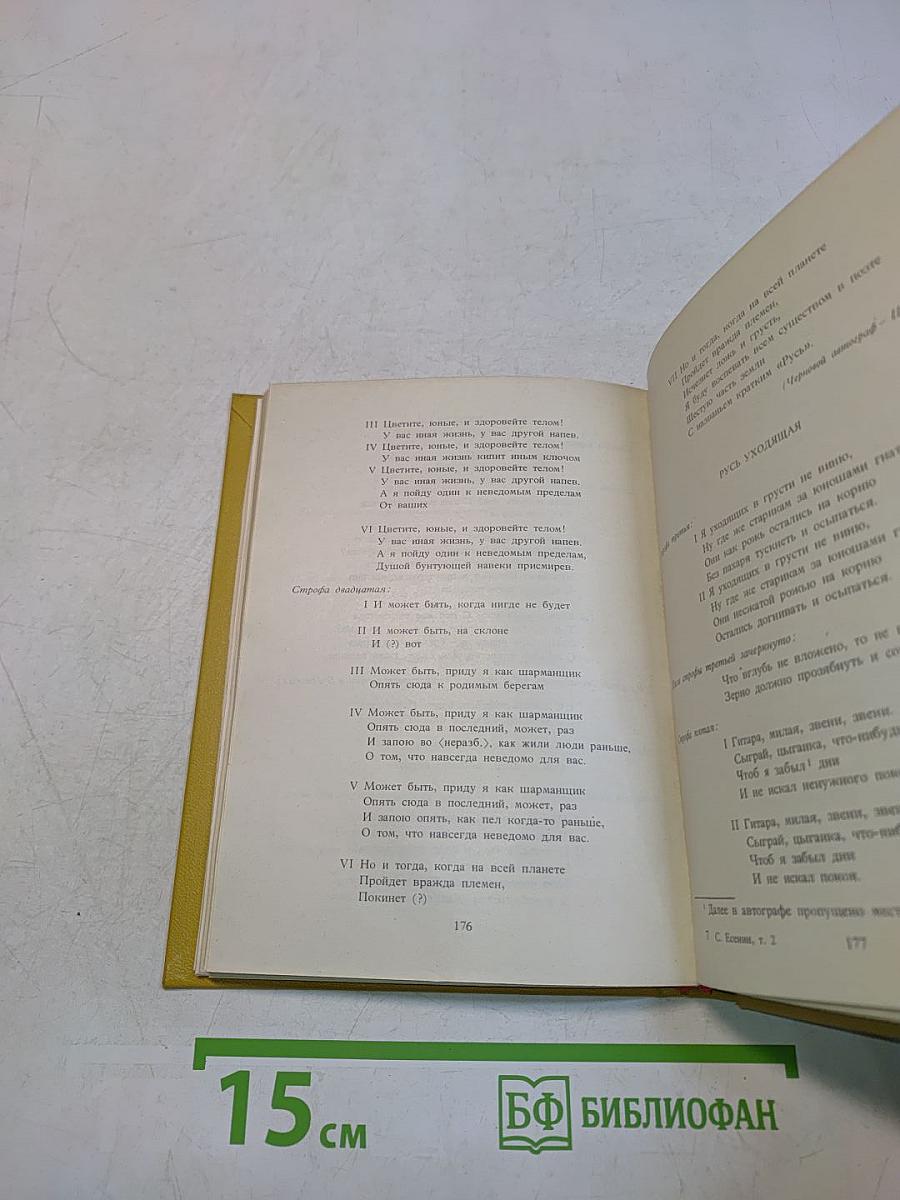 III Цветите, юные, и здоровейте телом!
У вас иная жизнь, у вас другой напев.
IV Цветите, юные, и здоровейте телом!
У вас иная жизнь кипит иным ключом
V Цветите, юные, и здоровейте телом!
У вас иная жизнь, у вас другой напев.
А я пойду один к неведомым пределам
От ваших
VI Цветите, юные, и здоровейте телом!
У вас иная жизнь, у вас другой напев.
А я пойду один к неведомым пределам,
Душой бунтующей навеки присмирев.
Строфа двадцатая:
I И может быть, когда нигде не будет
II И может быть, на склоне
И (?) вот
III Может быть, приду я как шарманщик
Опять сюда к родимым берегам
IV Может быть, приду я как шарманщик
Опять сюда в последний, может, раз
И запою во ⟨неразб.⟩, как жили люди раньше,
О том, что навсегда неведомо для вас.
V Может быть, приду я как шарманщик
Опять сюда в последний, может, раз
И запою опять, как пел когда-то раньше,
О том, что навсегда неведомо для вас.
VI Но и тогда, когда на всей планете
Пройдет вражда племен,
Покинет (?)
176
VII Но и тогда, когда на всей планете
Пройдет вражда племен,
Исчезнет ложь и грусть,
Я буду воспевать всем существом в поэте
Шестую часть земли
С названьем кратким «Русь».
(Черновой автограф –
РУСЬ УХОДЯЩАЯ
третья:
I Я уходящих в грусти не виню,
Ну где же старикам за юношами
Они как рожь остались на корню
Без пахаря тускнеть и осыпаться.
II Я уходящих в грусти не виню,
Ну где же старикам за юношами
Они несжатой рожью на корню
Остались догнивать и осыпаться.
строфы третьей зачеркнуто:
Что вглубь не вложено, то не
Зерно должно прозябнуть и
I Гитара, милая, звени, звени.
Сыграй, цыганка,
Чтоб я забыл¹ дни
И не искал ненужного
II Гитара, милая, звени,
Сыграй, цыганка,
Чтоб я забыл дни
И не искал покой.
¹ Далее в автографе пропущено
7 С. Есенин, т. 2
177
15 см
БФ БИБЛИОФАН